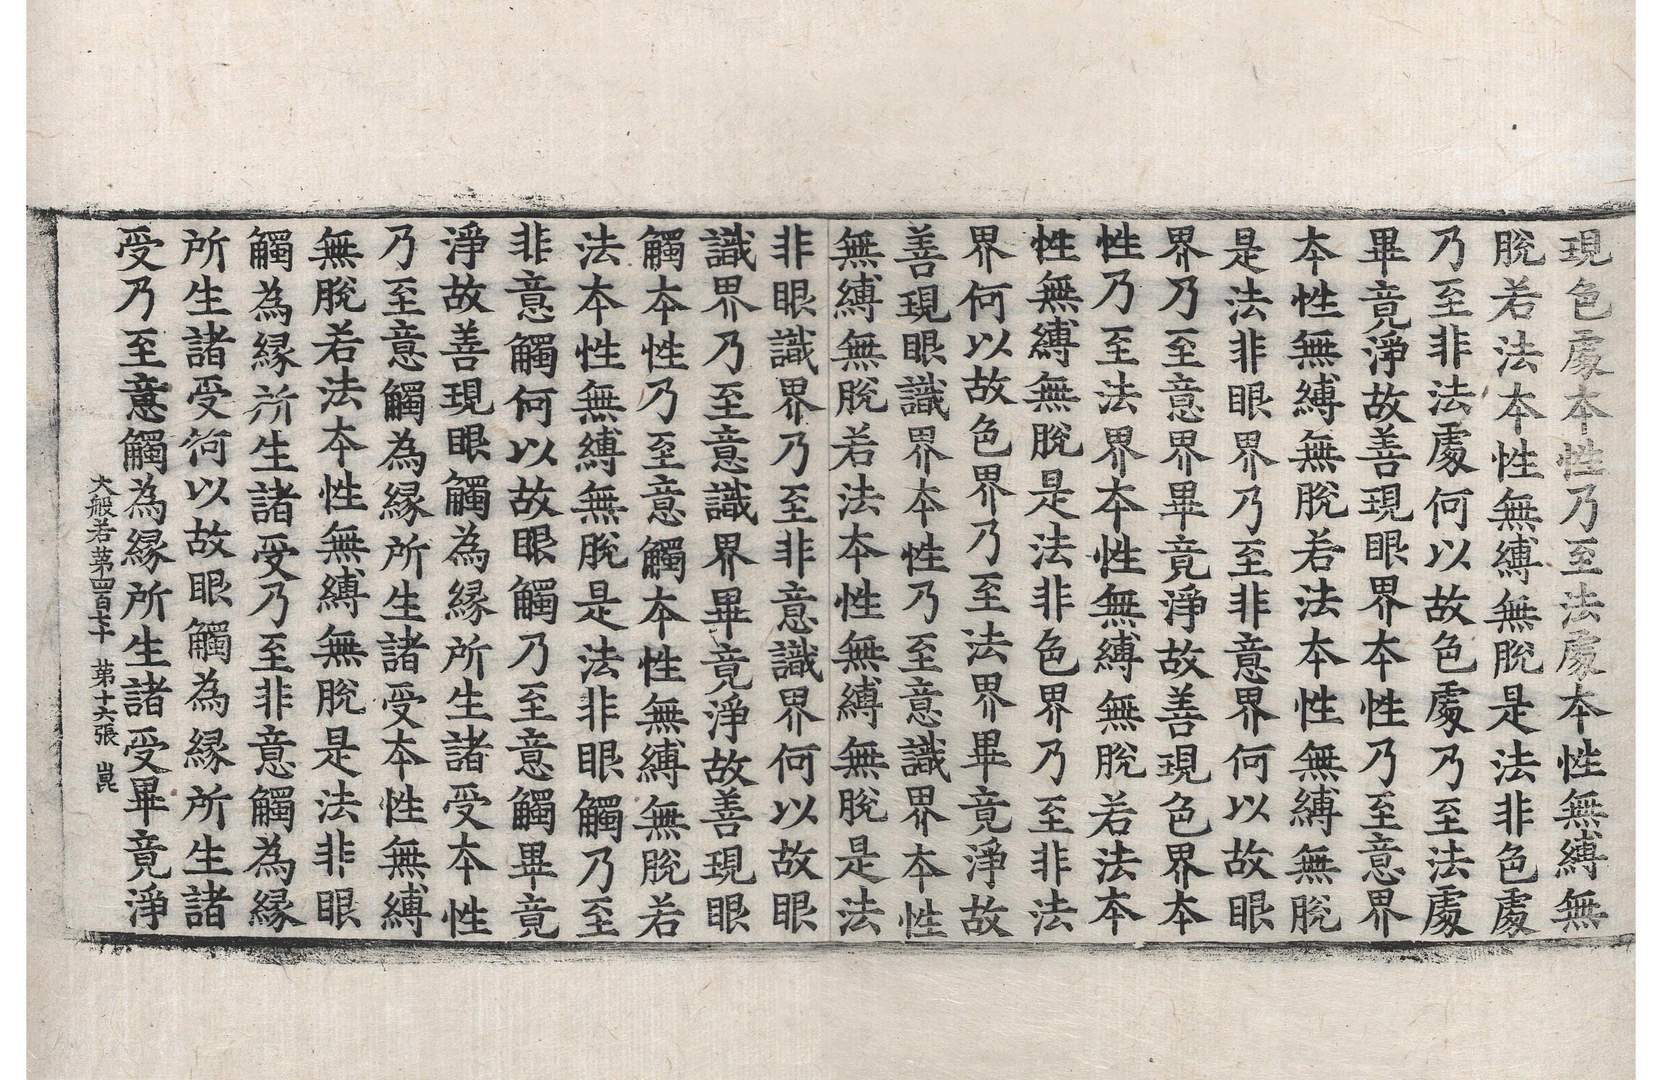 現色處本性乃至法處本性無縛無
脫若法本性無縛無脫是法非色處
乃至非法處何以故色處乃至法處
畢竟淨故善現眼界本性乃至意界
本性無縛無脫若法本性無縛無脫
是法非眼界乃至非意界何以故眼
界乃至意界畢竟淨故善現色界本
性乃至法界本性無縛無脫若法本
性無縛無脫是法非色界乃至非法
界何以故色界乃至法界畢竟淨故
善現眼識界本性乃至意識界本性
無縛無脫若法本性無縛無脫是法
非眼識界乃至非意識界何以故眼
識界乃至意識界畢竟淨故善現眼
觸本性乃至意觸本性無縛無脫若
法本性無縛無脫是法非眼觸乃至
非意觸何以故眼觸乃至意觸畢竟
淨故善現眼觸為緣所生諸受本性
乃至意觸為緣所生諸受本性無縛
無脫若法本性無縛無脫是法非眼
觸為緣所生諸受乃至非意觸為緣
所生諸受何以故眼觸為緣所生諸
受乃至意觸為緣所生諸受畢竟淨
大般若第四百七十 第十六張 崑